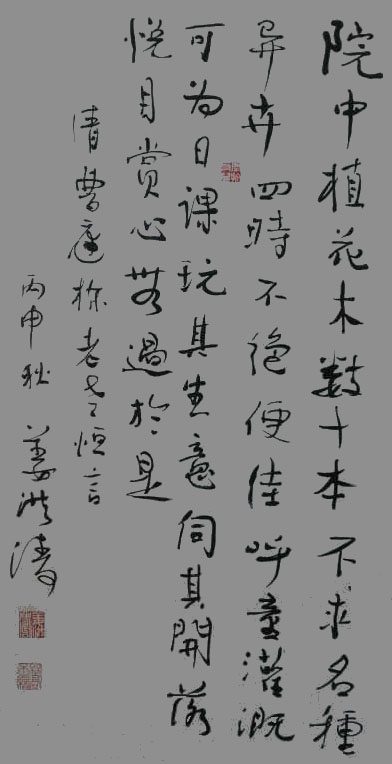 院中植花木数十本不求名種
异卉四時不絕便佳呼童灌溉
可为日課玩其生意伺其開落
悦目賞心無過於是
清曹庭栋老老恒言
丙申秋姜洪涛